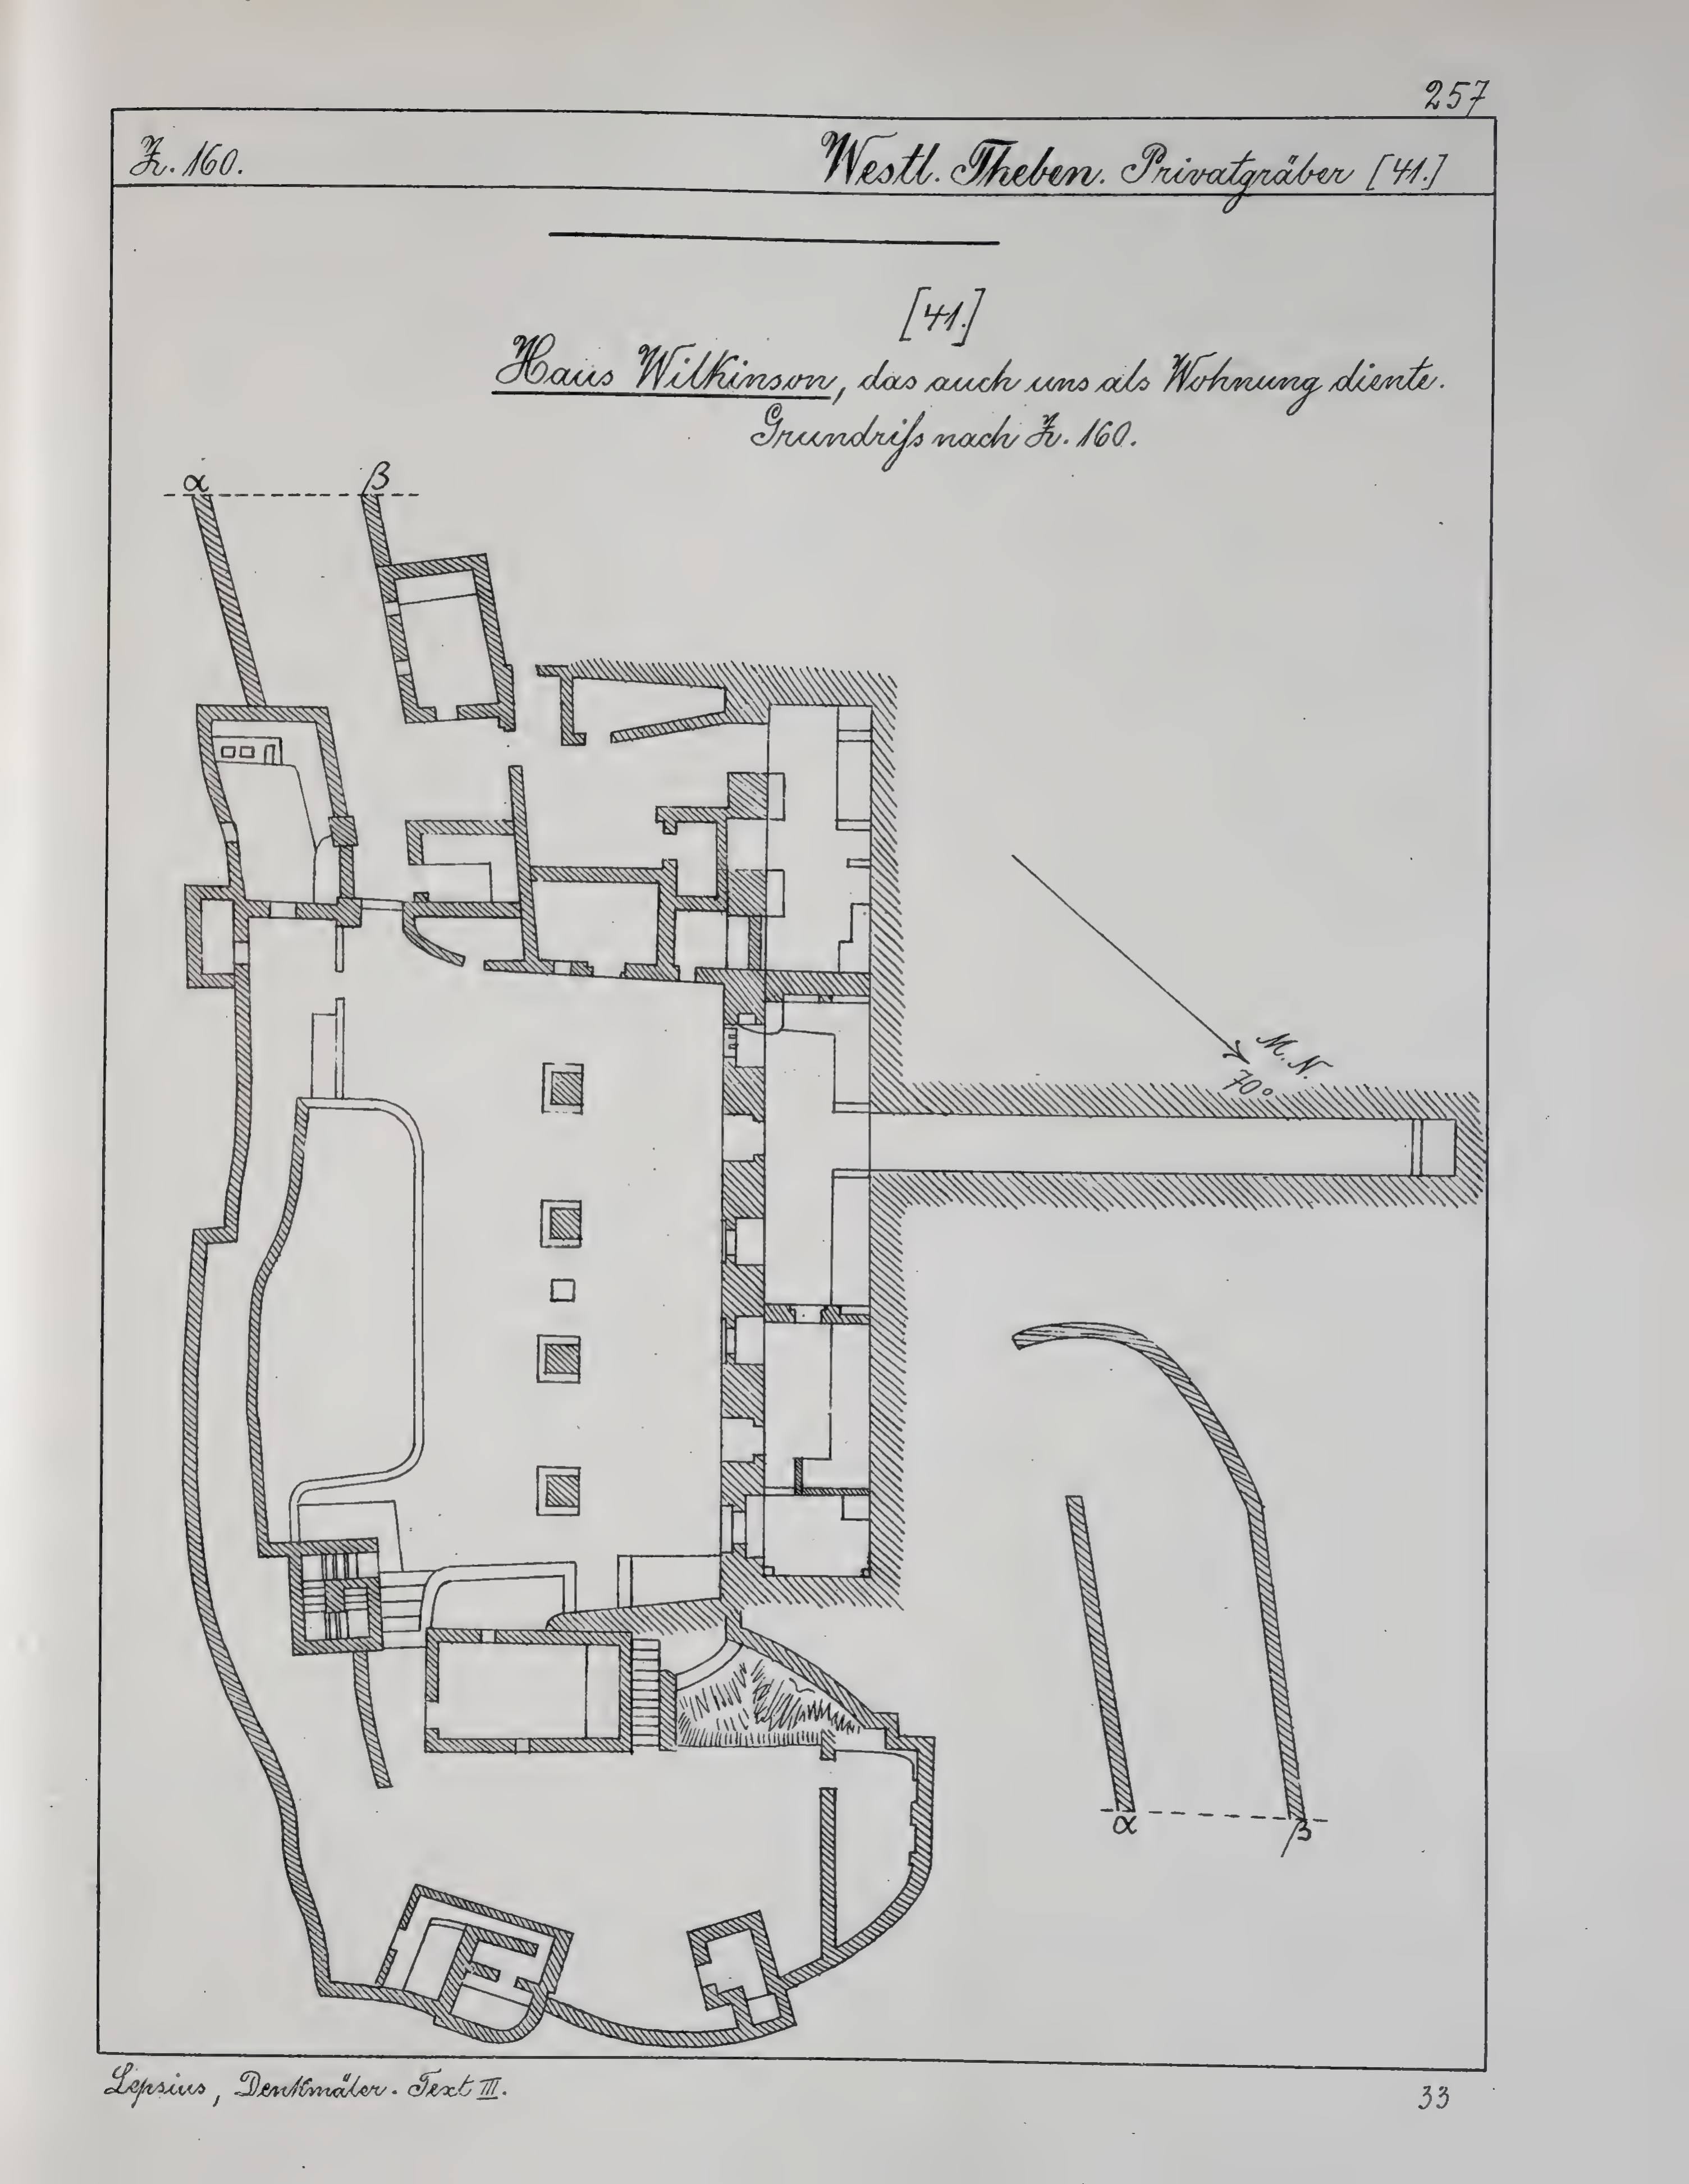 257
Z. 160.
Westl. Theben. Privatgräber [41.]
[41.]
Haus Wilkinson, das auch uns als Wohnung diente.
Grundriſs nach Z. 160.
α β
M. N.
70°
α β
Lepsius, Denkmäler. Text III.
33